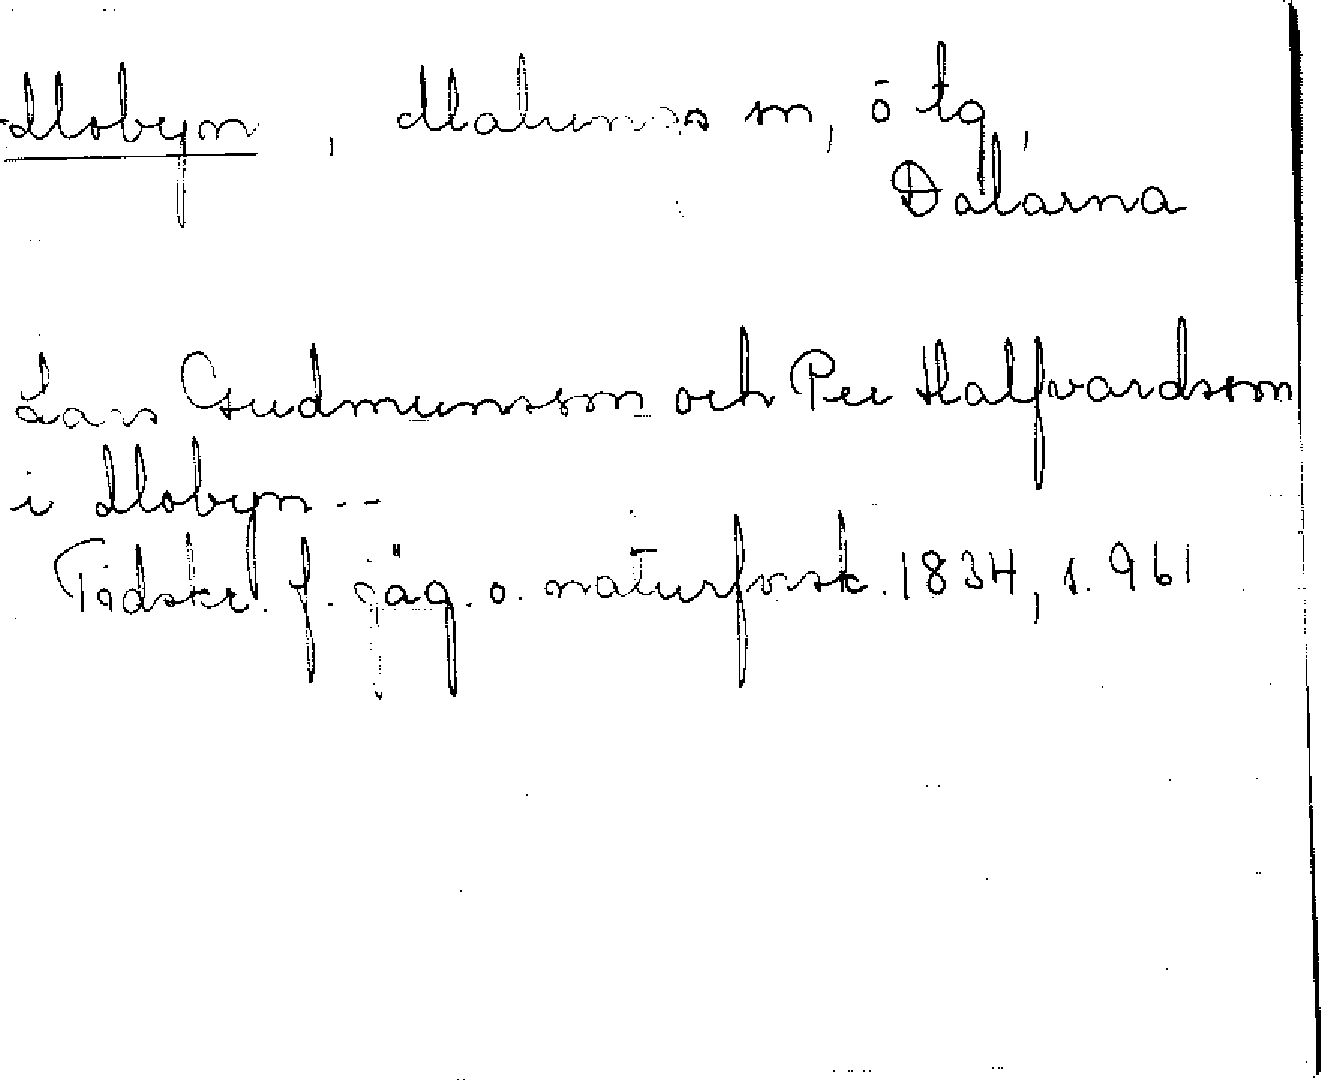 Mobyn, Malungs sn, ö tg,
Dalarna
Lars Gudmunsson och Per Halfvardsson
i Mobyn --
Tidskr. f. jäg. o. naturforsk. 1834, s. 961